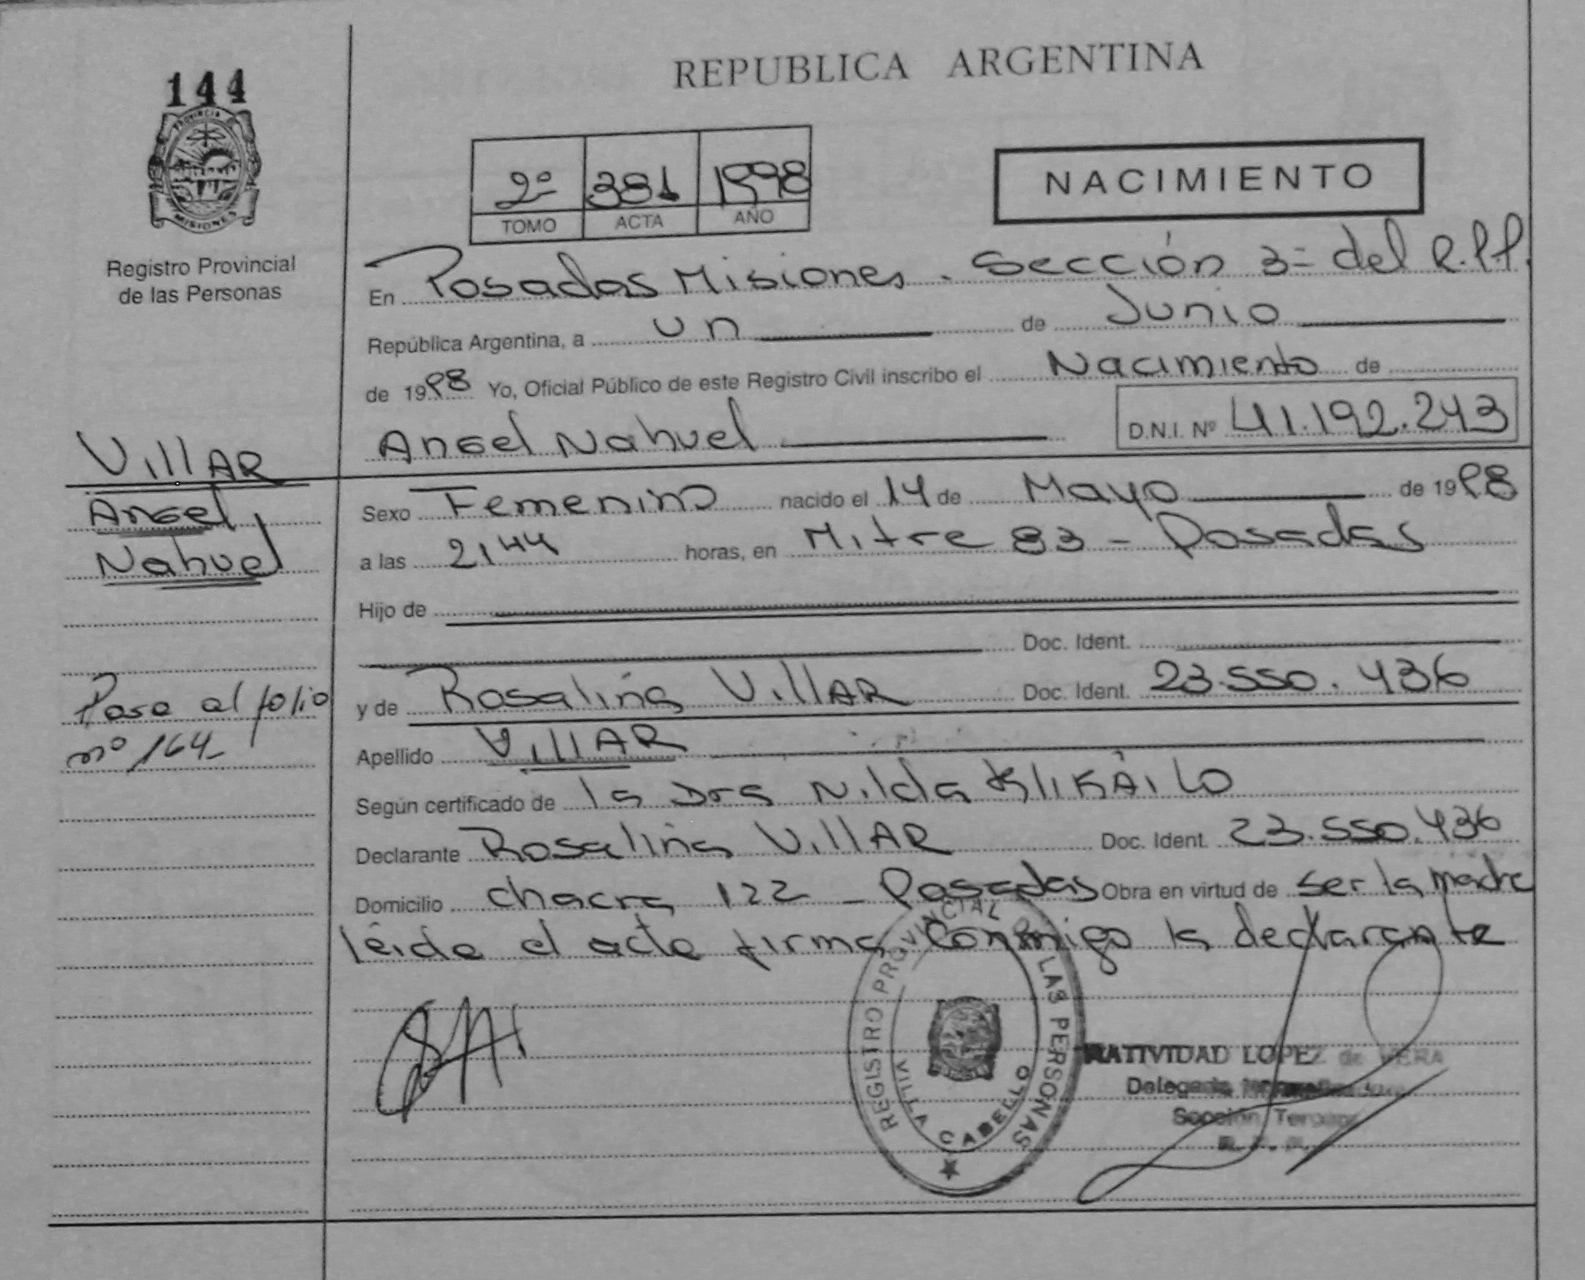 144
PROVINCIA
MISIONES
Registro Provincial
de las Personas
REPUBLICA ARGENTINA
2º 381 1998
TOMO ACTA AÑO
NACIMIENTO
En Posadas Misiones - Sección 3= del R.P.P.
República Argentina, a un de Junio
de 1998 Yo, Oficial Público de este Registro Civil inscribo el Nacimiento de
Angel Nahuel D.N.I. Nº 41.192.243
VillAR
Angel
Nahuel
Sexo Femenino nacido el 14 de Mayo de 1998
a las 2144 horas, en Mitre 83 - Posadas
Hijo de
Doc. Ident.
y de Rosalina VillAR Doc. Ident. 23.550.436
Pasa al folio
nº 164-
Apellido VillAR
Según certificado de la Dra Nilda
Declarante Rosalina VillAR Doc. Ident. 23.550.436
Domicilio chacra 122 - Posadas Obra en virtud de ser la madre
leida el acta firma conmigo la declarante
REGISTRO PROVINCIAL DE LAS PERSONAS
VILLA CABELLO
NATIVIDAD LOPEZ de VERA
Delegada
Sección Tercera